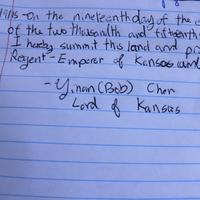 this - On the nineteenth day of the
of the two thousandth and fifteenth
I hereby summit this land and
Regent - Emperor of Kansas and
- Yinan (Bob) Chen
Lord of Kansas